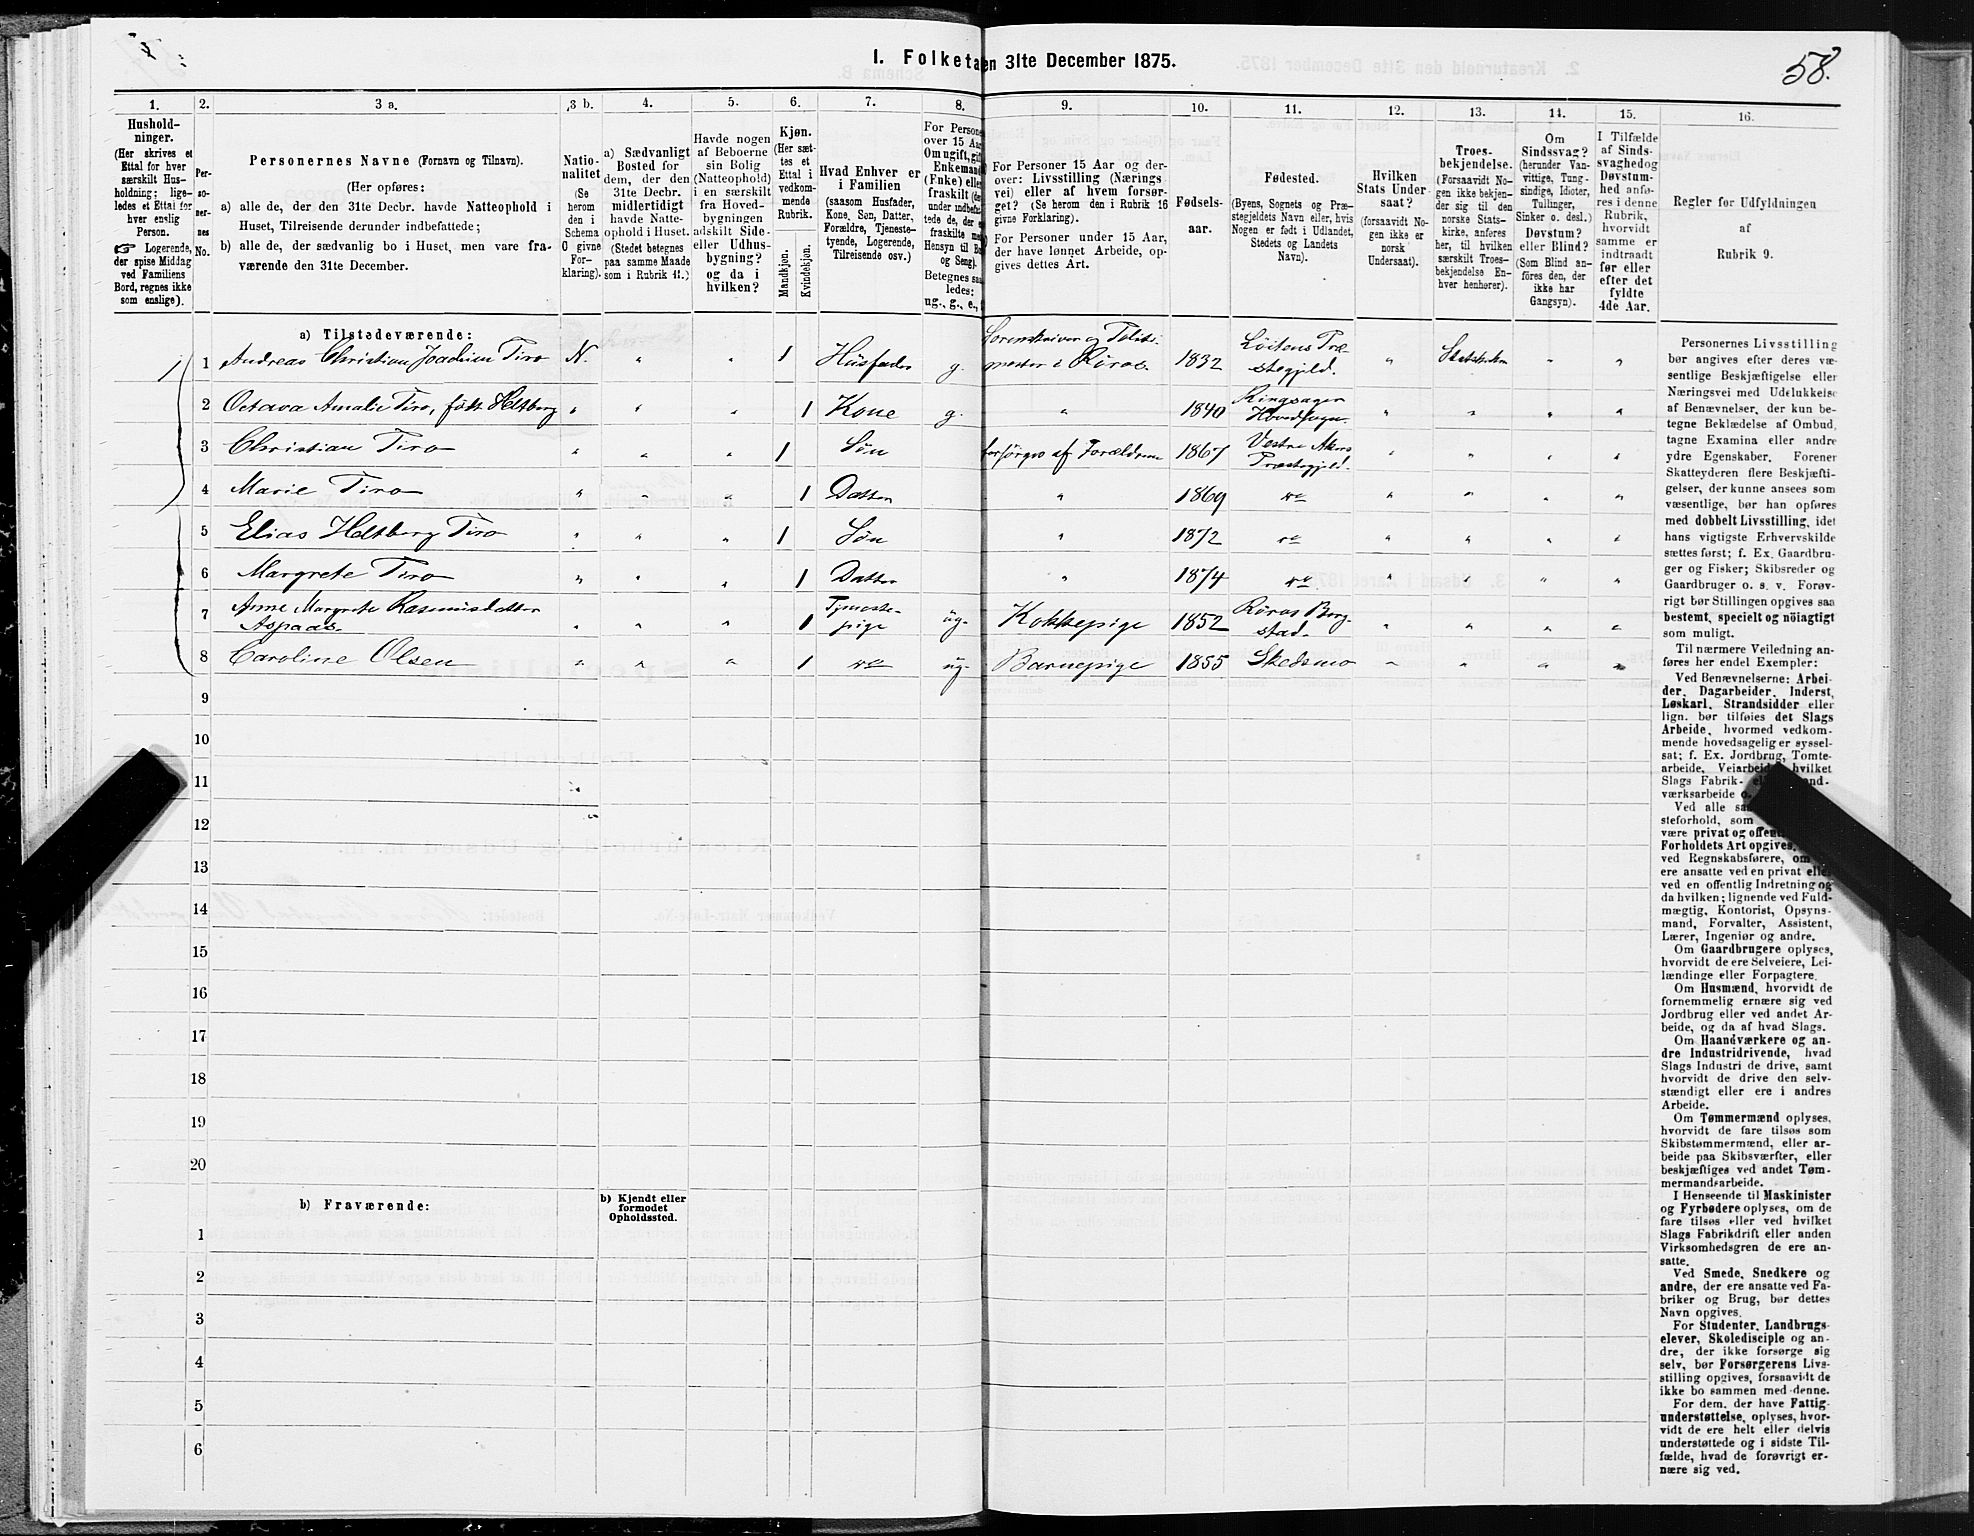 I. Folketa en 31te December 1875.
58.
1. 2. 3 a. 3 b. 4. 5. 6. 7. 8. 9. 10. 11. 12. 13. 14. 15. 16.
Hushold-
ninger.
(Her skrives et
Ettal for hver
særskilt Hus-
holdning; lige-
ledes et Ettal for
hver enslig
Person.
☞ Logerende,
der spise Middag
ved Familiens
Bord, regnes ikke
som enslige).
Per-
so-
ner-
nes
No.
Personernes Navne (Fornavn og Tilnavn).
(Her opføres:
a) alle de, der den 31te Decbr. havde Natteophold i
Huset, Tilreisende derunder indbefattede;
b) alle de, der sædvanlig bo i Huset, men vare fra-
værende den 31te December.
Natio-
nalitet
(Se
herom
den i
Schema
O givne
For-
klaring).
a) Sædvanligt
Bosted for
dem, der den
31te Decbr.
midlertidigt
havde Natte-
ophold i Huset.
(Stedet betegnes
paa samme Maade
som i Rubrik 11.)
Havde nogen
af Beboerne
sin Bolig
(Natteophold)
i en særskilt
fra Hoved-
bygningen
adskilt Side-
eller Udhus-
bygning?
og da i
hvilken?
Kjøn.
(Her sæt-
tes et
Ettal i
vedkom-
mende
Rubrik.
Mandkjøn.
Kvindekjøn.
Hvad Enhver er
i Familien
(saasom Husfader,
Kone, Søn, Datter,
Forældre, Tjeneste-
tyende, Logerende,
Tilreisende osv.)
For Persone
over 15 Aa
Om ugift, gif
Enkeman
(Enke) elle
fraskilt (de
under indbefat-
tede de, der
fraskilte me
Hensyn til Bo
og Seng).
Betegnes saa
ledes:
ug., g., e.,
For Personer 15 Aar og der-
over: Livsstilling (Nærings
vei) eller af hvem forsør-
get? (Se herom den i Rubrik 16
givne Forklaring).
For Personer under 15 Aar,
der have lønnet Arbeide, op-
gives dettes Art.
Fødsels-
aar.
Fødested.
(Byens, Sognets og Præ-
stegjeldets Navn eller, hvis
Nogen er født i Udlandet,
Stedets og Landets
Navn).
Hvilken
Stats Under
saat?
(forsaavidt No-
gen ikke er
norsk
Undersaat).
Troes-
bekjendelse.
(Forsaavidt No-
gen ikke bekjen-
der sig til den
norske Stats-
kirke, anføres
her, til hvilken
særskilt Troes-
bekjendelse En-
hver henhører).
Om
Sindssvag?
(herunder Van-
vittige, Tung-
sindige, Idioter,
Tullinger,
Sinker o. desl.)
Døvstum?
eller Blind?
(Som Blind an-
føres den, der
ikke har
Gangsyn).
I Tilfælde
af Sinds-
svaghed og
Døvstum-
hed anfø-
res i denne
Rubrik,
hvorvidt
samme er
indtraadt
før eller
efter det
fyldte
4de Aar.
Regler for Udfyldningen
af
Rubrik 9.
a) Tilstedeværende:
1 1 Andreas Christian Joachim Tiro N. " " 1 Husfader g. Sorenskriver og Politi-
mester i Røros. 1832 Løitens Præ-
stegjeld. " Statskirken " "
2 Octava Amalie Tiro, født Heltberg " " " 1 Kone g. " 1840 Ringsager
Hovedsogn. " " " "
3 Christian Tiro " " " 1 Søn forsørges af Forældrene 1867 Vestre Akers
Præstegjeld. " " " "
4 Marie Tiro " " " 1 Datter " 1869 do " " " "
5 Elias Heltberg Tiro " " " 1 Søn " 1872 do " " " "
6 Margrete Tiro " " " 1 Datter " 1874 do " " " "
7 Anne Margrete Rasmusdatter
Aspaas. " " " 1 Tjeneste-
pige ug. Kokkepige 1852 Røros Berg-
stad. " " " "
8 Caroline Olsen " " " 1 do ug. Barnepige 1855 Skedsmo " " " "
9
10
11
12
13
14
15
16
17
18
19
20
b) Fraværende:
b) Kjendt eller
formodet
Opholdssted.
1
2
3
4
5
6
Personernes Livsstilling
bør angives efter deres væ-
sentlige Beskjæftigelse eller
Næringsvei med Udelukkelse
af Benævnelser, der kun be-
tegne Beklædelse af Ombud,
tagne Examina eller andre
ydre Egenskaber. Forener
Skatteyderen flere Beskjæfti-
gelser, der kunne ansees som
væsentlige, bør han opføres
med dobbelt Livsstilling, idet
hans vigtigste Erhvervskilde
sættes først; f. Ex. Gaardbru-
ger og Fisker; Skibsreder og
Gaardbruger o. s. v. Forøv-
rigt bør Stillingen opgives saa
bestemt, specielt og nöiagtigt
som muligt.
Til nærmere Veiledning an-
føres her endel Exempler:
Ved Benævnelserne: Arbei-
der, Dagarbeider, Inderst,
Løskarl, Strandsidder eller
lign. bør tilføies det Slags
Arbeide, hvormed vedkom-
mende hovedsagelig er syssel-
sat; f. Ex. Jordbrug, Tomte-
arbeide, Veiarbeide, hvilket
Slags Fabrik- el and-
værksarbeide o.
Ved alle sa
steforhold, som
være privat og offent
Forholdets Art opgives,
ved Regnskabsførere, om
ere ansatte ved en privat eller
ved en offentlig Indretning og
da hvilken; lignende ved Fuld-
mægtig, Kontorist, Opsyns-
mand, Forvalter, Assistent,
Lærer, Ingeniør og andre.
Om Gaardbrugere oplyses,
hvorvidt de ere Selveiere, Lei-
lændinge eller Forpagtere.
Om Husmænd, hvorvidt de
fornemmelig ernære sig ved
Jordbrug eller ved andet Ar-
beide, og da af hvad Slags.
Om Haandværkere og an-
dre Industridrivende, hvad
Slags Industri de drive, samt
hvorvidt de drive den selv-
stændigt eller ere i andres
Arbeide.
Om Tømmermænd oplyses,
hvorvidt de fare tilsøs som
Skibstømmermænd, eller ar-
beide paa Skibsværfter, eller
beskjæftiges ved andet Tøm-
mermandsarbeide.
I Henseende til Maskinister
og Fyrbødere oplyses, om de
fare tilsøs eller ved hvilket
Slags Fabrikdrift eller anden
Virksomhedsgren de ere an-
satte.
Ved Smede, Snedkere og
andre, der ere ansatte ved Fa-
briker og Brug, bør dettes
Navn opgives.
For Studenter, Landbrugs-
elever, Skoledisciple og an-
dre, der ikke forsørge sig
selv, bør Forsørgerens Livs-
stilling opgives, forsaavidt de
ikke bo sammen med denne.
For dem, der have Fattig-
understøttelse, oplyses, hvor-
vidt de ere helt eller delvis
understøttede og i sidste Til-
fælde, hvad de forøvrigt er-
nære sig ved.